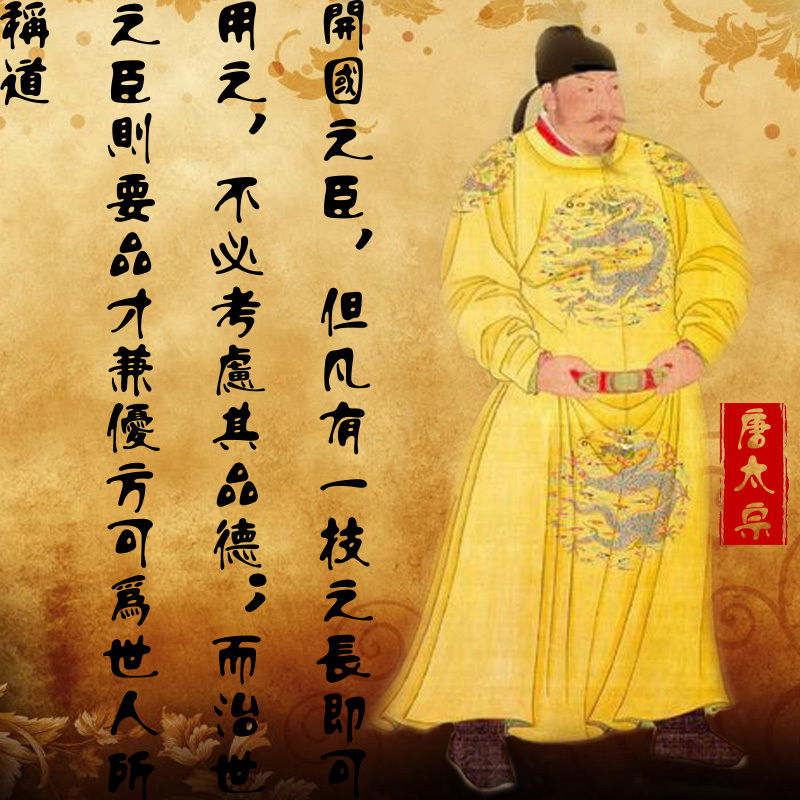 開國之臣，但凡有一枝之長即可
用之，不必考慮其品德；而治世
之臣則要品才兼優方可爲世人所
稱道
唐太宗